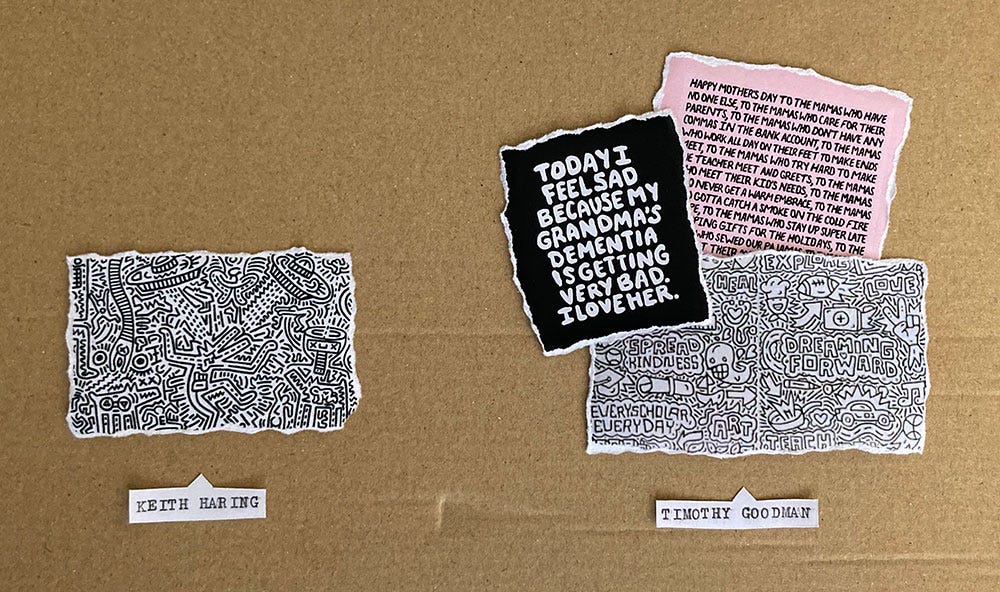 KEITH HARING
TODAY I
FEEL SAD
BECAUSE MY
GRANDMA'S
DEMENTIA
IS GETTING
VERY BAD.
I LOVE HER.
HAPPY MOTHERS DAY TO THE MAMAS WHO HAVE
NO ONE ELSE, TO THE MAMAS WHO CARE FOR THEIR
PARENTS, TO THE MAMAS WHO DON'T HAVE ANY
COMMAS IN THE BANK ACCOUNT, TO THE MAMAS
WHO WORK ALL DAY ON THEIR FEET TO MAKE ENDS
MEET, TO THE MAMAS WHO TRY HARD TO MAKE
TEACHER MEET AND GREETS, TO THE MAMAS
MEET THEIR KID'S NEEDS, TO THE MAMAS
NEVER GET A WARM EMBRACE, TO THE MAMAS
GOTTA CATCH A SMOKE ON THE COLD FIRE
TO THE MAMAS WHO STAY UP SUPER LATE
GIFTS FOR THE HOLIDAYS, TO THE
WHO SEWED OUR
THEIR
EXPLORE
HEAL
LOVE
SPREAD
KINDNESS
DREAMING
FORWARD
EVERY SCHOLAR
EVERY DAY
ART
TEACH
TIMOTHY GOODMAN